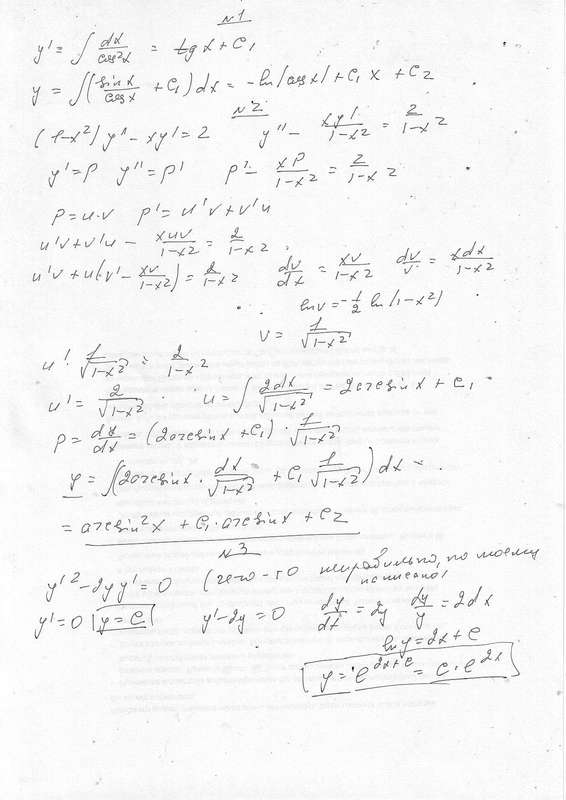 №1
y' = ∫ dx/cos²x = tg x + C₁
y = ∫(sin x/cos x + C₁) dx = -ln|cos x| + C₁ x + C₂
№2
(1-x²) y'' - xy' = 2    y'' - xy'/(1-x²) = 2/(1-x²)
y' = p    y'' = p'    p' - xp/(1-x²) = 2/(1-x²)
p = u·v    p' = u'v + v'u
u'v + v'u - xuv/(1-x²) = 2/(1-x²)
u'v + u(v' - xv/(1-x²)) = 2/(1-x²)    dv/dx = xv/(1-x²)    dv/v = xdx/(1-x²)
ln v = -1/2 ln(1-x²)
v = 1/√(1-x²)
u' · 1/√(1-x²) = 2/(1-x²)
u' = 2/√(1-x²)    u = ∫ 2dx/√(1-x²) = 2arcsin x + C₁
p = dy/dx = (2arcsin x + C₁) · 1/√(1-x²)
y = ∫(2arcsin x · dx/√(1-x²) + C₁ 1/√(1-x²)) dx =
= arcsin²x + C₁ · arcsin x + C₂
№3
y'² - 2yy' = 0    (что-то неправильно, по моему
написано)
y' = 0    y = C    y' - 2y = 0    dy/dx = 2y    dy/y = 2dx
ln y = 2x + C
y = e^(2x+C) = C · e^(2x)